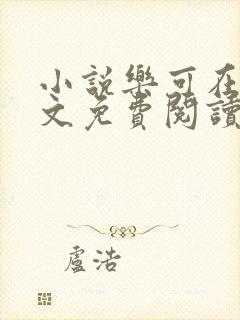 小說樂可在
文免費閱讀
盧浩